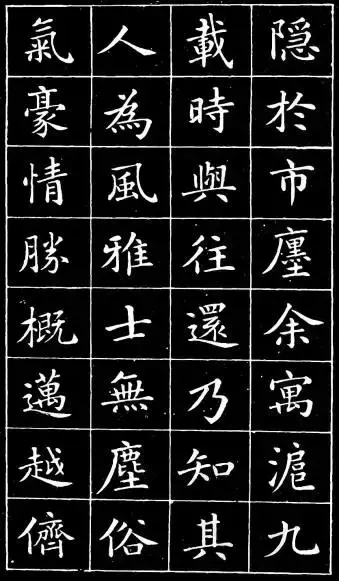 隐於市廛余寓滬九
載時與往還乃知其
人為風雅士無塵俗
氣豪情勝概邁越儕